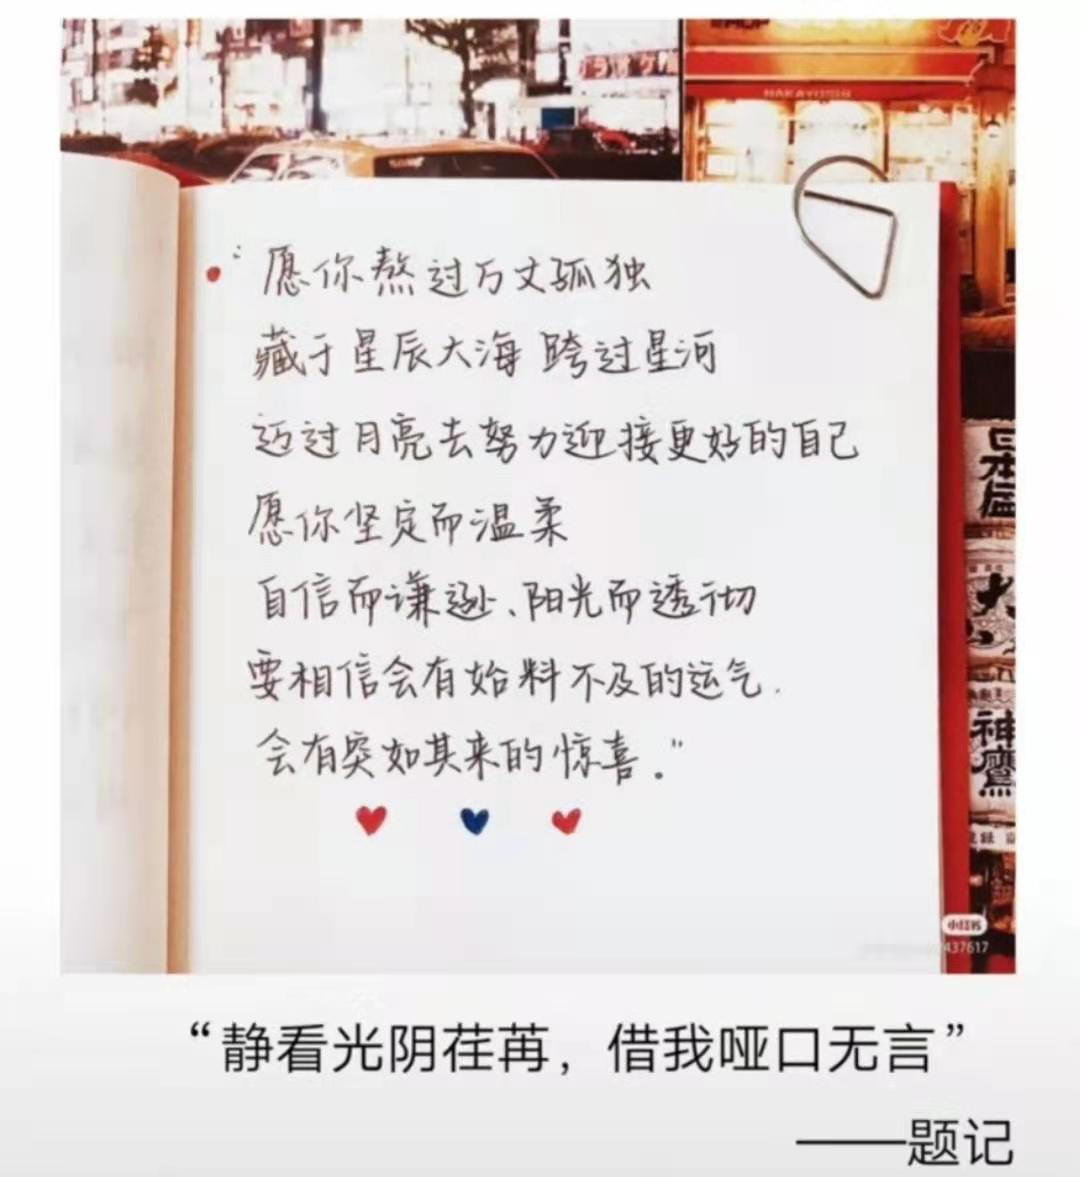 "愿你熬过万丈孤独
藏于星辰大海 跨过星河
迈过月亮去努力迎接更好的自己
愿你坚定而温柔
自信而谦逊、阳光而透彻
要相信会有始料不及的运气.
会有突如其来的惊喜。"
神鹰
小红书
437617
“静看光阴荏苒，借我哑口无言”
——题记